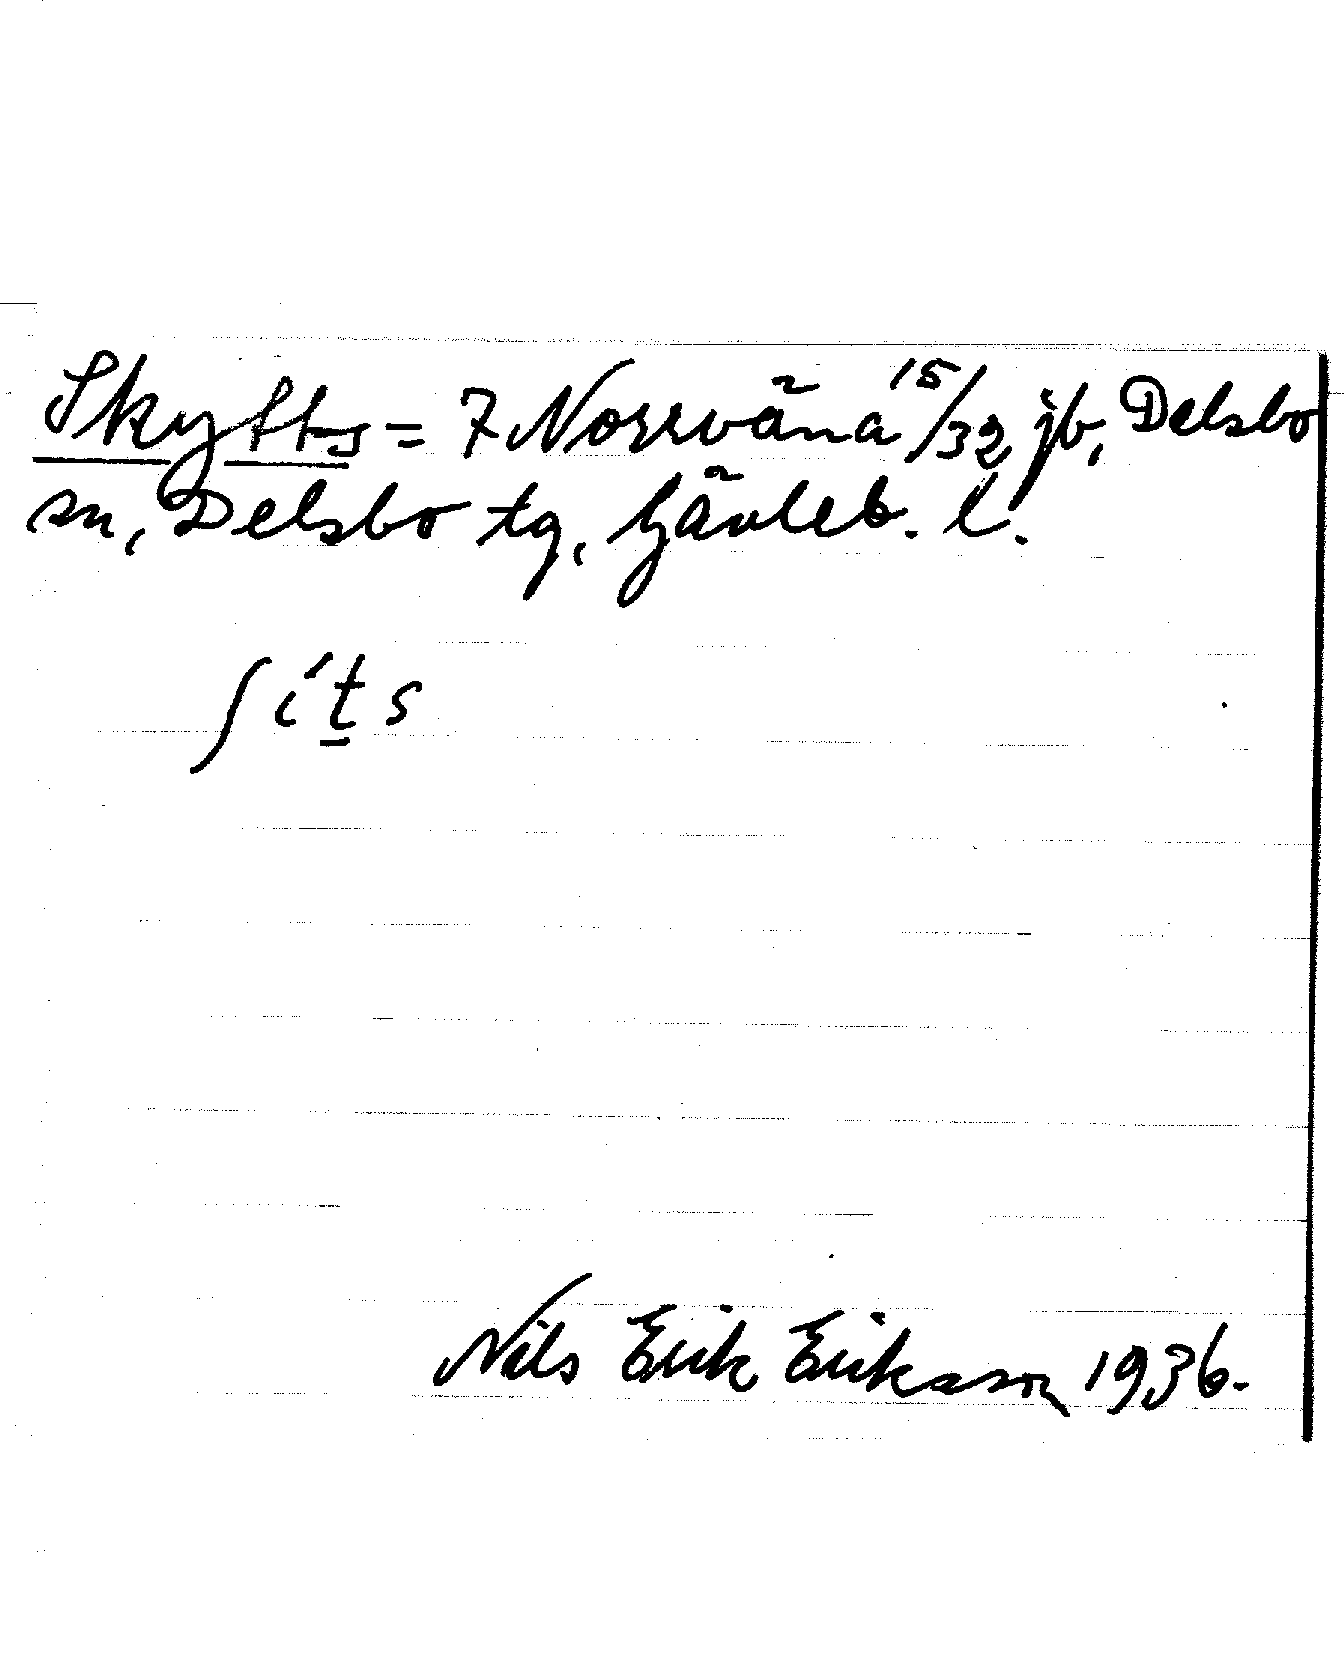 Skytts = 7 Norrväna 15/32 jb, Delsbo
sn, Delsbo tg, Gävleb. l.
ʃ í t̲ s
Nils Erik Eriksson 1936.